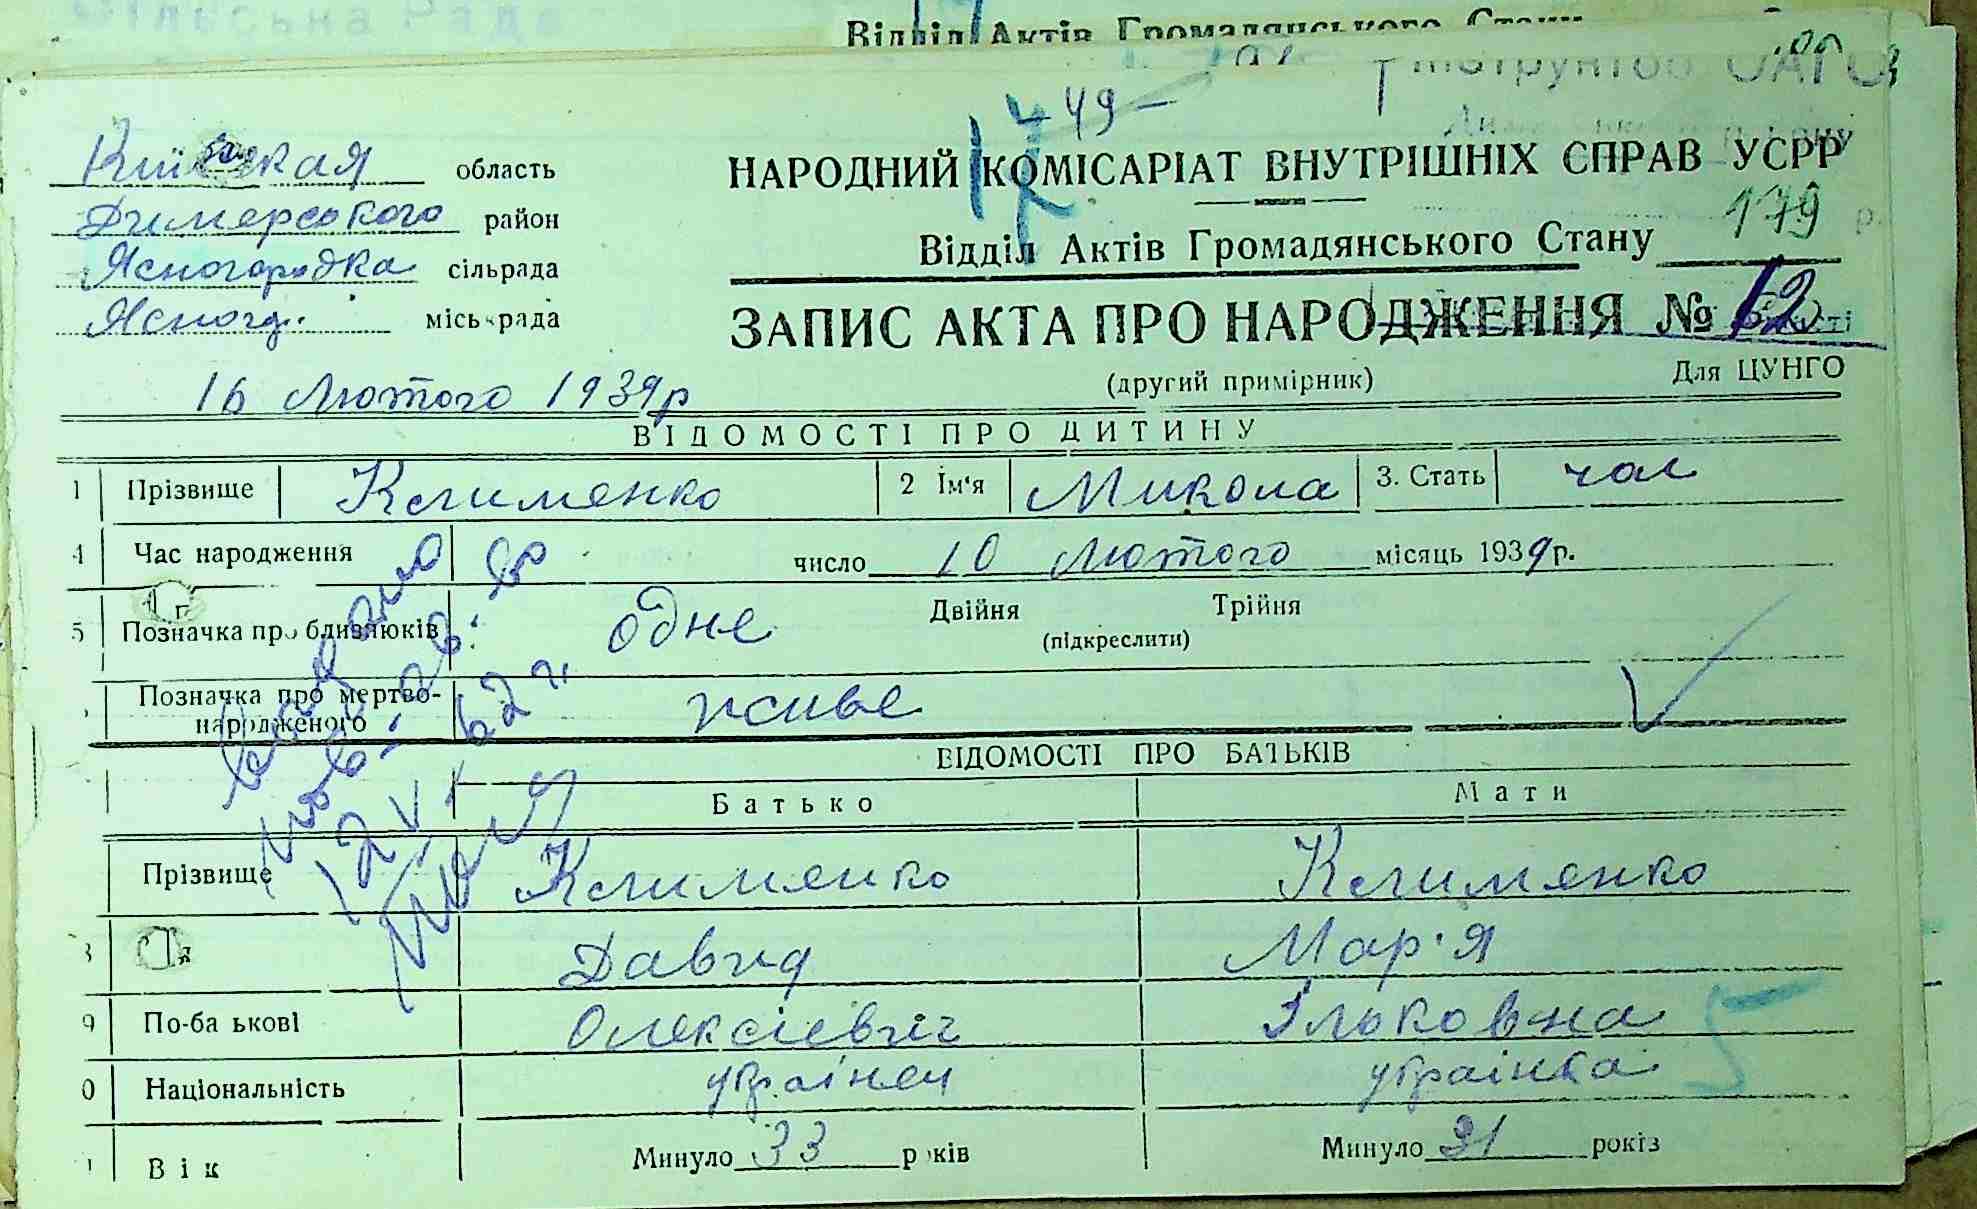 Відділ Актів Громадянського Стану
449-
Київская область
НАРОДНИЙ КОМІСАРІАТ ВНУТРІШНІХ СПРАВ УСРР
Димерського район
179
Відділ Актів Громадянського Стану
Ясногородка сільрада
Ясногр. міськрада
ЗАПИС АКТА ПРО НАРОДЖЕННЯ № 12
(другий примірник) Для ЦУНГО
16 Лютого 1939р
ВІДОМОСТІ ПРО ДИТИНУ
1 Прізвище Клименко 2 Ім'я Микола 3. Стать чол
4 Час народження число 10 Лютого місяць 1939р.
5 Позначка про близнюків одне Двійня Трійня
(підкреслити)
Позначка про мертво-
народженого живе
ВІДОМОСТІ ПРО БАТЬКІВ
Батько Мати
Прізвище Клименко Клименко
Давид Мар'я
9 По-ба ькові Олексієвич Ільковна
5
0 Національність українец українка
Вік Минуло 33 років Минуло 31 років